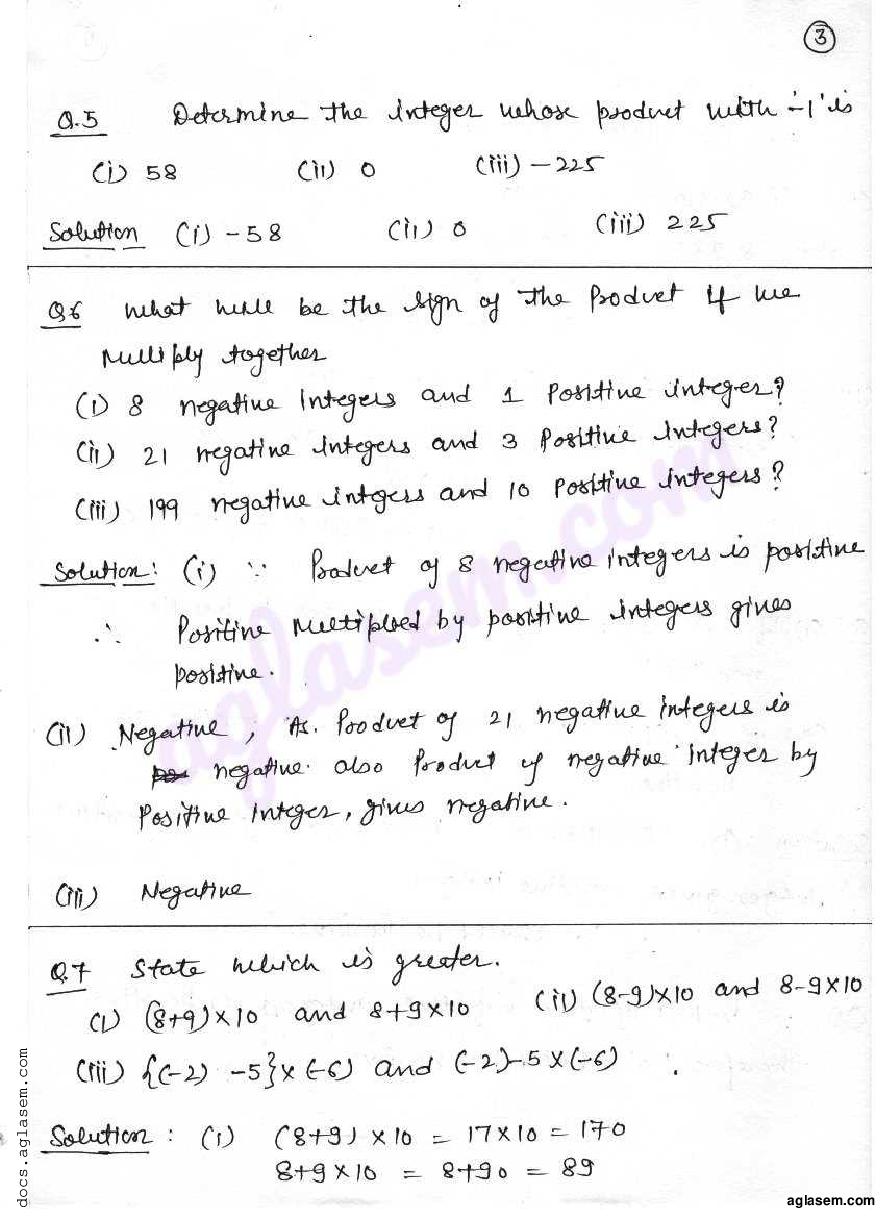 3
Q.5 Determine the integer whose product with '-1' is
(i) 58 (ii) 0 (iii) -225
Solution (i) -58 (ii) 0 (iii) 225
Q6 What will be the sign of the Product if we
Multiply together
(i) 8 negative integers and 1 Positive integer?
(ii) 21 negative integers and 3 Positive integers?
(iii) 199 negative intgers and 10 Positive integers?
Solution: (i) ∵ Product of 8 negative integers is positive
∴ Positive multiplied by positive integers gives
positive.
(ii) Negative, As. Product of 21 negative integers is
negative. also Product of negative integer by
Positive integer, gives negative.
(iii) Negative
Q.7 State which is greater.
(i) (8+9)×10 and 8+9×10 (ii) (8-9)×10 and 8-9×10
(iii) {(-2) -5}×(-6) and (-2)-5×(-6) .
Solution : (i) (8+9) × 10 = 17×10 = 170
8+9×10 = 8+90 = 89
aglasem.com
docs.aglasem.com
aglasem.com